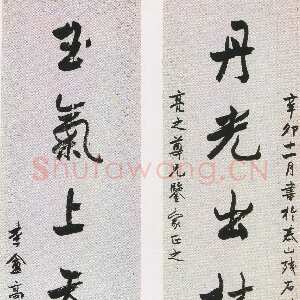 辛卯十二月書於泰山殘石
丹光出
亮之尊兄鑒家正之
玉氣上天
李盦高
Shufawang.CN